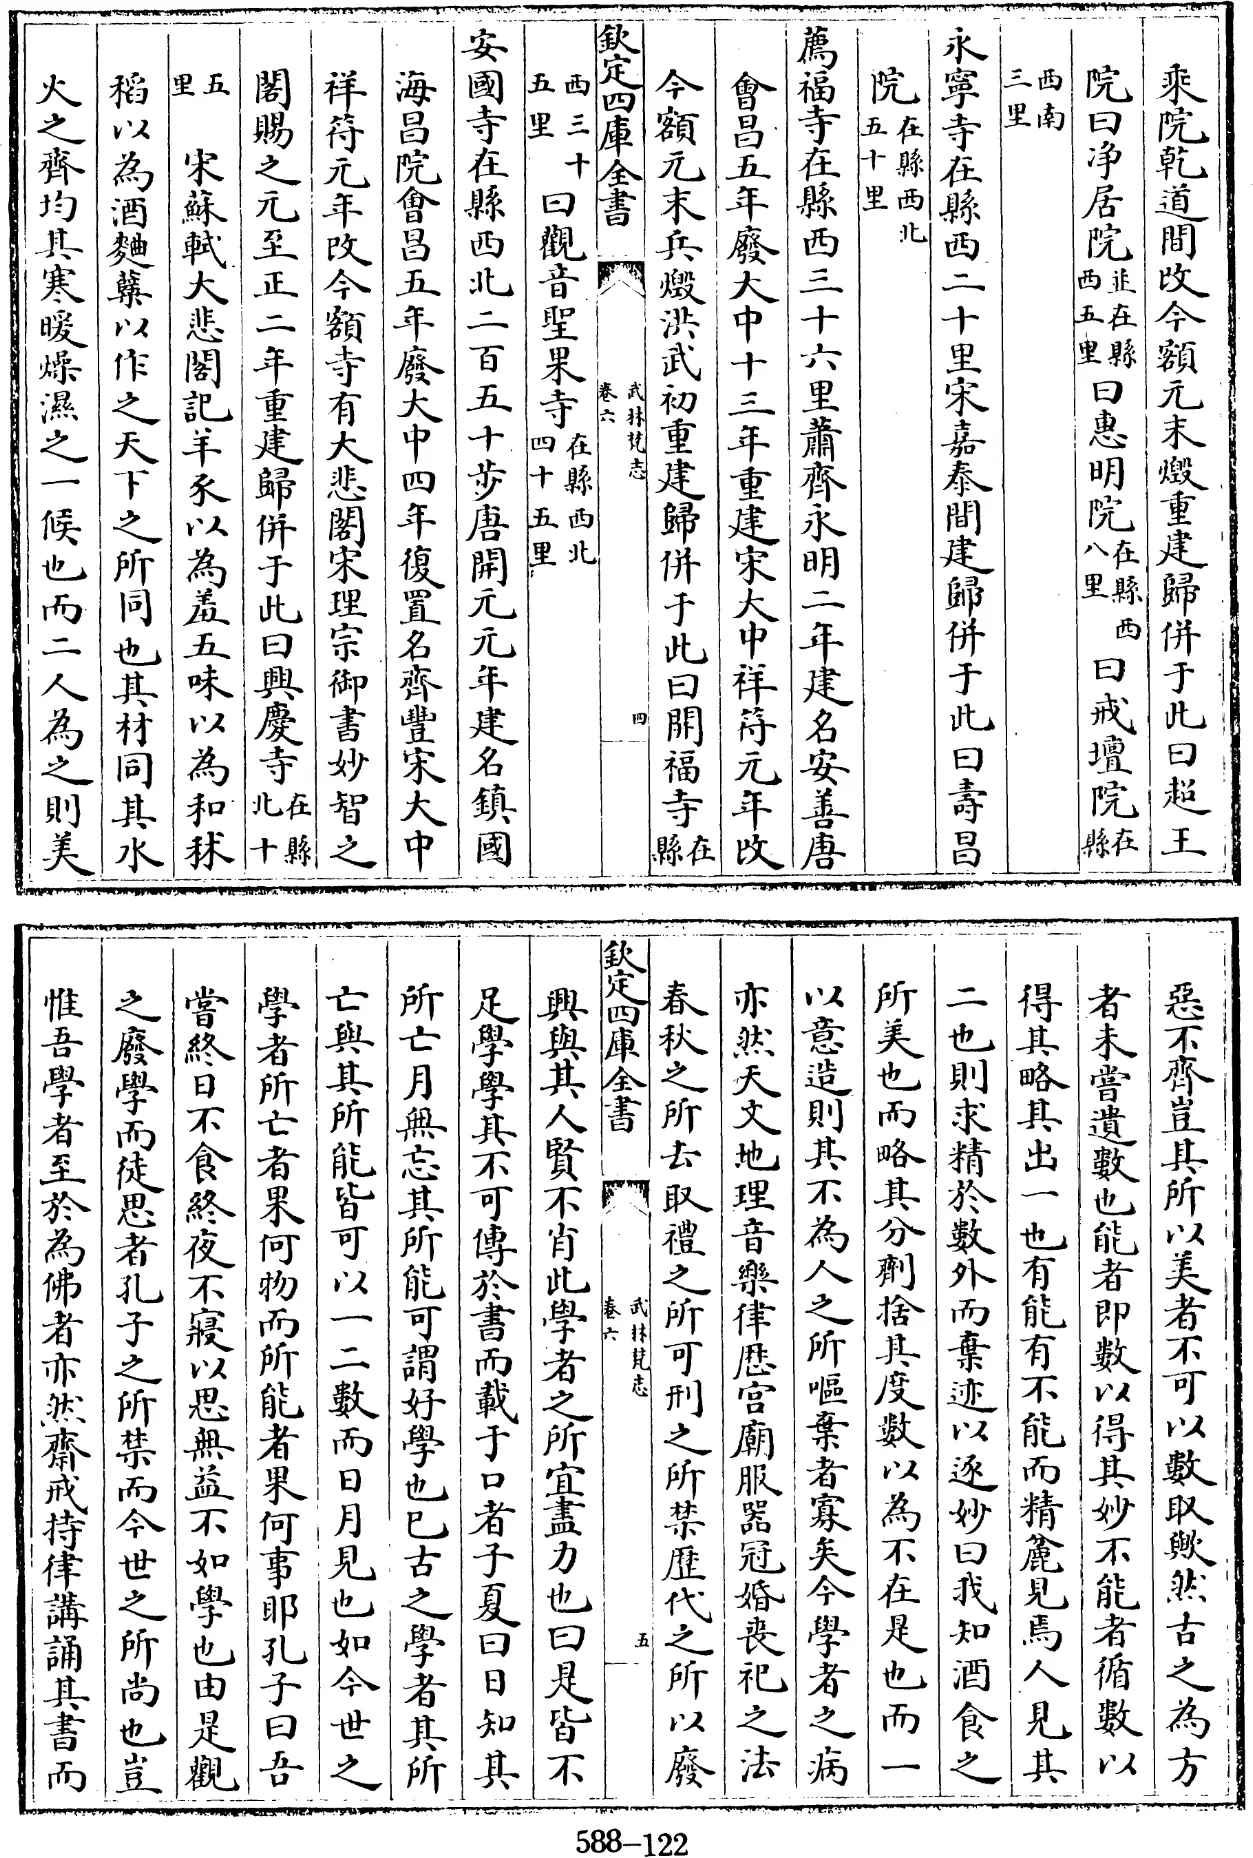 乘院乾道間改今額元末燬重建歸併于此曰超王
院曰浄居院韭在縣西五里曰惠明院在縣西八里曰戒壇院在縣
西南三里
永寧寺在縣西二十里宋嘉泰間建歸併于此曰壽昌
院在縣西北五十里
薦福寺在縣西三十六里蕭齊永明二年建名安善唐
會昌五年廢大中十三年重建宋大中祥符元年改
今額元末兵燬洪武初重建歸併于此曰開福寺在縣
欽定四庫全書
武林梵志
卷六
四
西三十五里曰觀音聖果寺在縣西北四十五里
安國寺在縣西北二百五十步唐開元元年建名鎮國
海昌院會昌五年廢大中四年復置名齊豐宋大中
祥符元年改今額寺有大悲閣宋理宗御書妙智之
閣賜之元至正二年重建歸併于此曰興慶寺在縣北十
五里
宋蘇軾大悲閣記羊豕以為羞五味以為和秫
稻以為酒麴糵以作之天下之所同也其材同其水
火之齊均其寒暖燥濕之一候也而二人為之則美
惡不齊豈其所以美者不可以數取歟然古之為方
者未嘗遺數也能者即數以得其妙不能者循數以
得其略其出一也有能有不能而精麄見焉人見其
二也則求精於數外而棄迹以逐妙曰我知酒食之
所美也而略其分劑捨其度數以為不在是也而一
以意造則其不為人之所嘔棄者寡矣今學者之病
亦然天文地理音樂律厯宫廟服器冠婚喪祀之法
春秋之所去取禮之所可刑之所禁歷代之所以廢
欽定四庫全書
武林梵志
卷六
五
興與其人賢不肖此學者之所宜盡力也曰是皆不
足學學其不可傳於書而載于口者子夏曰日知其
所亡月無忘其所能可謂好學也已古之學者其所
亡與其所能皆可以一二數而日月見也如今世之
學者所亡者果何物而所能者果何事耶孔子曰吾
嘗終日不食終夜不寢以思無益不如學也由是觀
之廢學而徒思者孔子之所禁而今世之所尚也豈
惟吾學者至於為佛者亦然齋戒持律講誦其書而
588-122